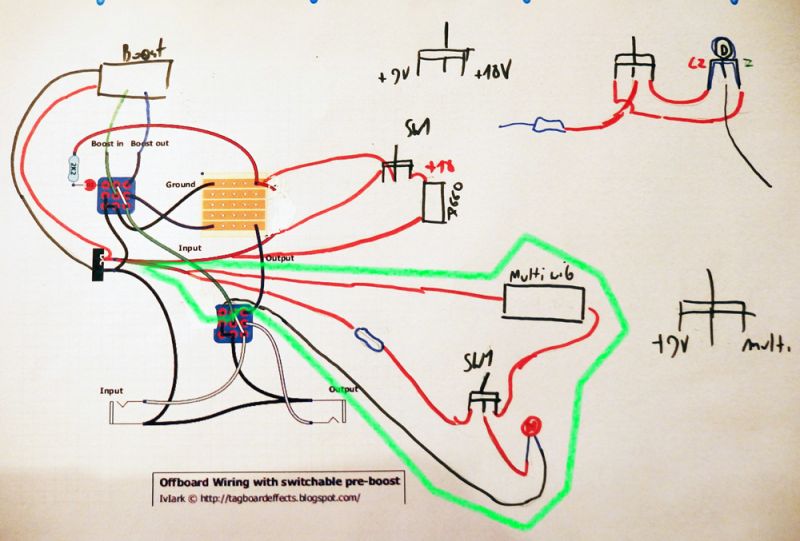 Boost
+9V
+18V
D
Boost in
Boost out
2K2
SW1
+18
Ground
Input
Output
Multivib
SW1
+9V
multi.
Input
Output
Offboard Wiring with switchable pre-boost
IvIark © http://tagboardeffects.blogspot.com/